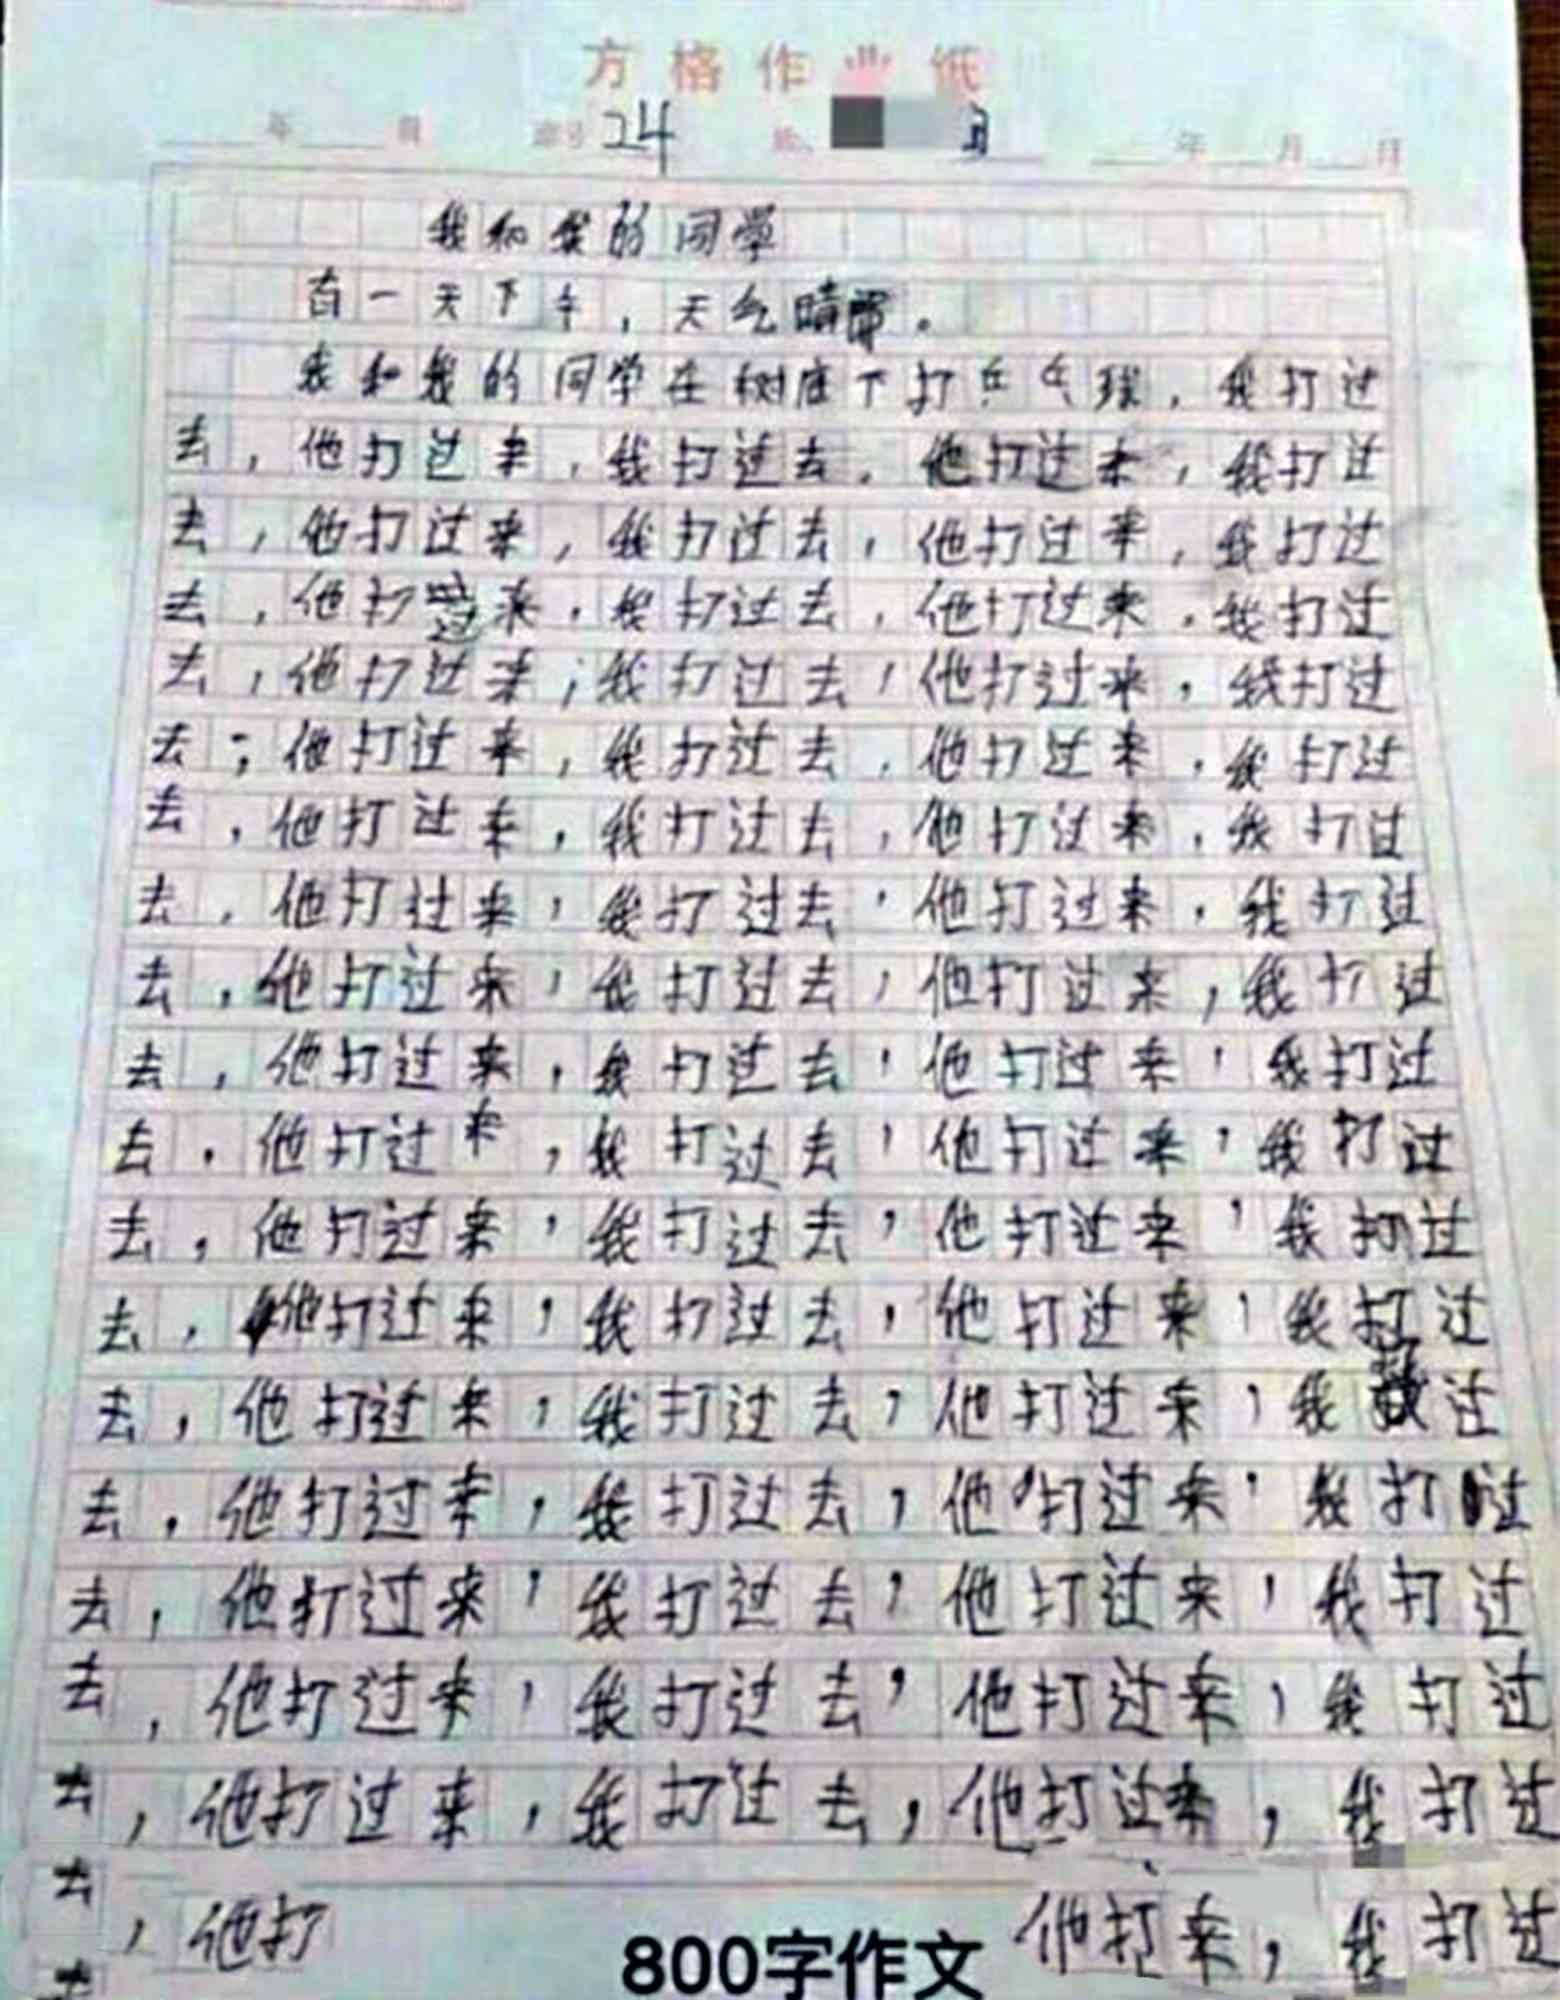 方格作业纸
年 月 24 年 月 日
我和我的同学
有一天下午，天气晴
我和我的同学在树底下打乒乓球，我打过
去，他打过来，我打过去，他打过来，我打过
去，他打过来，我打过去，他打过来，我打过
去，他打过来，我打过去，他打过来，我打过
去，他打过来；我打过去，他打过来，我打过
去；他打过来，我打过去，他打过来，我打过
去，他打过来，我打过去，他打过来，我打过
去，他打过来，我打过去，他打过来，我打过
去，他打过来，我打过去，他打过来，我打过
去，他打过来，我打过去，他打过来，我打过
去，他打过来，我打过去，他打过来，我打过
去，他打过来，我打过去，他打过来，我打过
去，他打过来，我打过去，他打过来，我打过
去，他打过来，我打过去，他打过来，我过
去，他打过来，我打过去，他打过来，我打过
去，他打过来，我打过去，他打过来，我打过
去，他打过来，我打过去，他打过来，我打过
去，他打过来，我打过去，他打过来，我打过
去，他打 他打来，我打过
800字作文